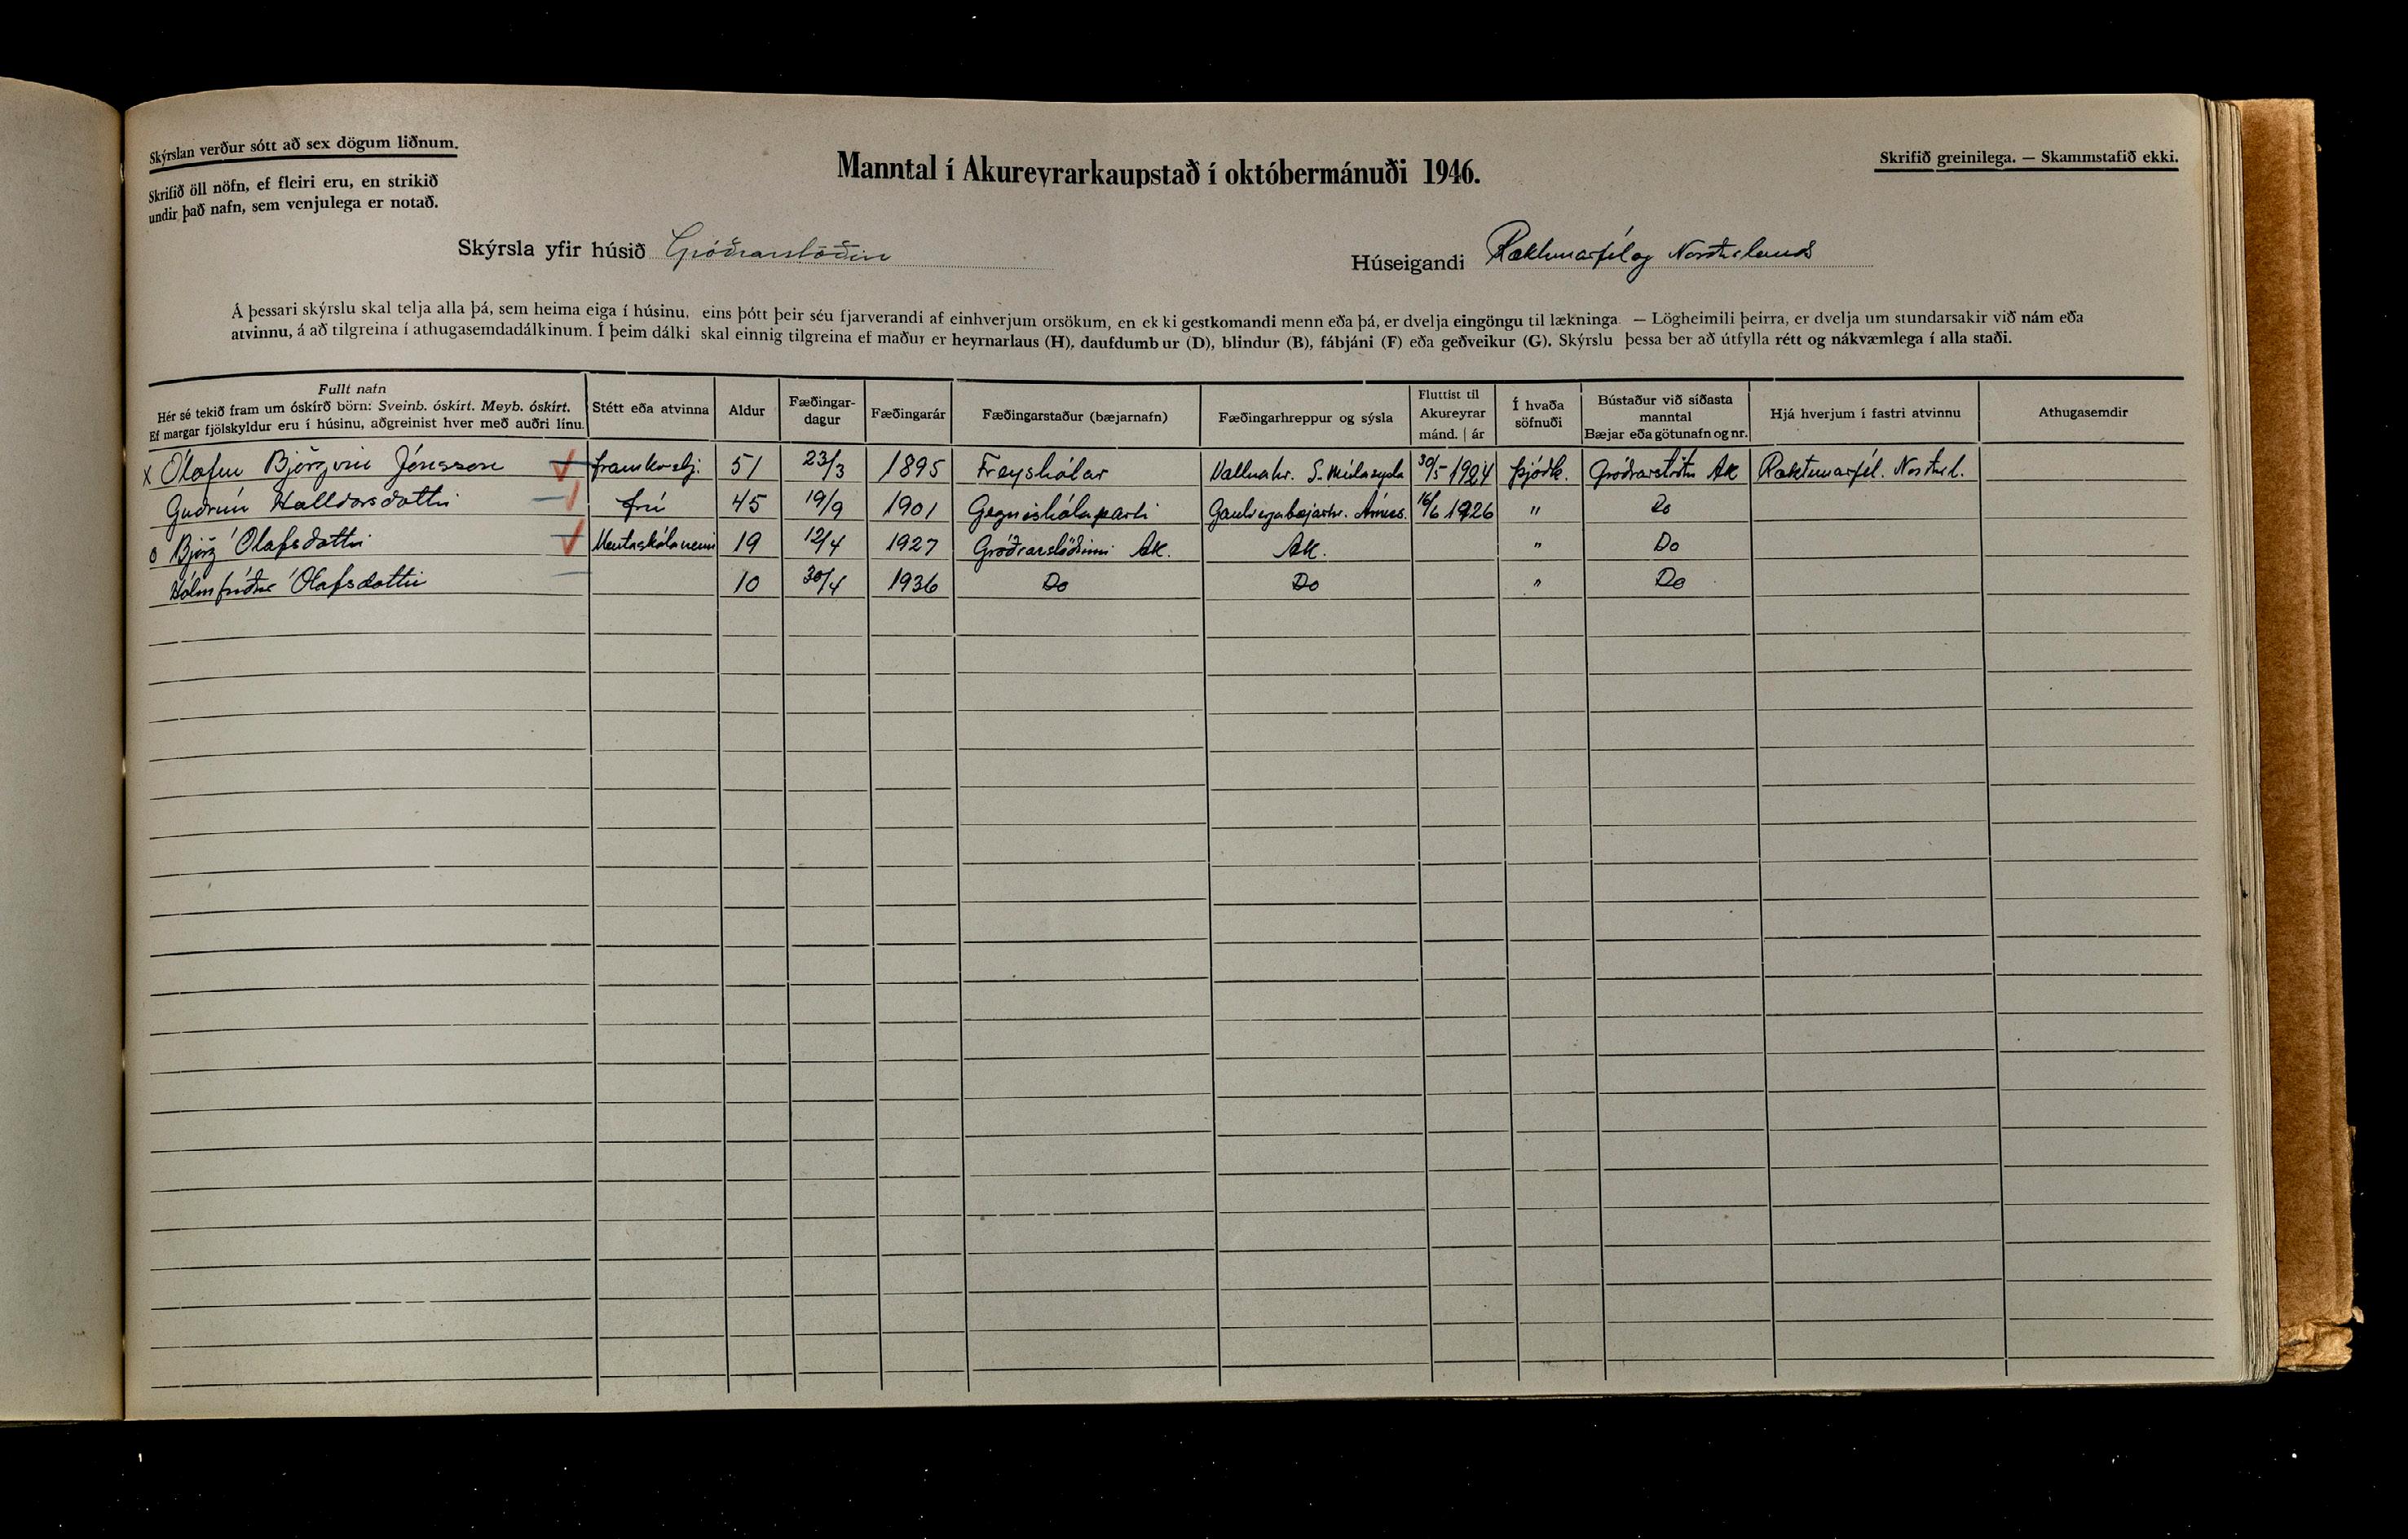 Skýrslan verður sótt að sex dögum liðnum.
Skrifið öll nöfn, ef fleiri eru, en strikið
undir það nafn, sem venjulega er notað.
Manntal í Akureyrarkaupstað í októbermánuði 1946.
Skrifið greinilega. — Skammstafið ekki.
Skýrsla yfir húsið Gróðrarstöðin
Húseigandi Ræktunarfélag Norðurlands
Á þessari skýrslu skal telja alla þá, sem heima eiga í húsinu, eins þótt þeir séu fjarverandi af einhverjum orsökum, en ekki gestkomandi menn eða þá, er dvelja eingöngu til lækninga. — Lögheimili þeirra, er dvelja um stundarsakir við nám eða
atvinnu, á að tilgreina í athugasemdadálkinum. Í þeim dálki skal einnig tilgreina ef maður er heyrnarlaus (H), daufdumbur (D), blindur (B), fábjáni (F) eða geðveikur (G). Skýrslu þessa ber að útfylla rétt og nákvæmlega í alla staði.
Fullt nafn
Hér sé tekið fram um óskírð börn: Sveinb. óskírt. Meyb. óskírt.
Ef margar fjölskyldur eru í húsinu, aðgreinist hver með auðri línu.
Stétt eða atvinna
Aldur
Fæðingar-
dagur
Fæðingarár
Fæðingarstaður (bæjarnafn)
Fæðingarhreppur og sýsla
Fluttist til
Akureyrar
mánd. | ár
Í hvaða
söfnuði
Bústaður við síðasta
manntal
Bæjar eða götunafn og nr.
Hjá hverjum í fastri atvinnu
Athugasemdir
x Ólafur Björgvin Jónsson framkv.stj. 51 23/3 1895 Freyshólar Vallnahr. S. Múlasýsla 30/5 1924 þjóðk. Gróðrarstöðin Ak Ræktunarfél. Norðurl.
Guðrún Halldórsdóttir frú 45 19/9 1901 Gegnishólaparti Gaulverjabæjarhr. Árness. 16/6 1926 " Do
o Björg Ólafsdóttir Mentaskólanemi 19 12/4 1927 Gróðrarstöðinni Ak. Ak. " Do
Hólmfríður Ólafsdóttir 10 30/4 1936 Do Do " Do